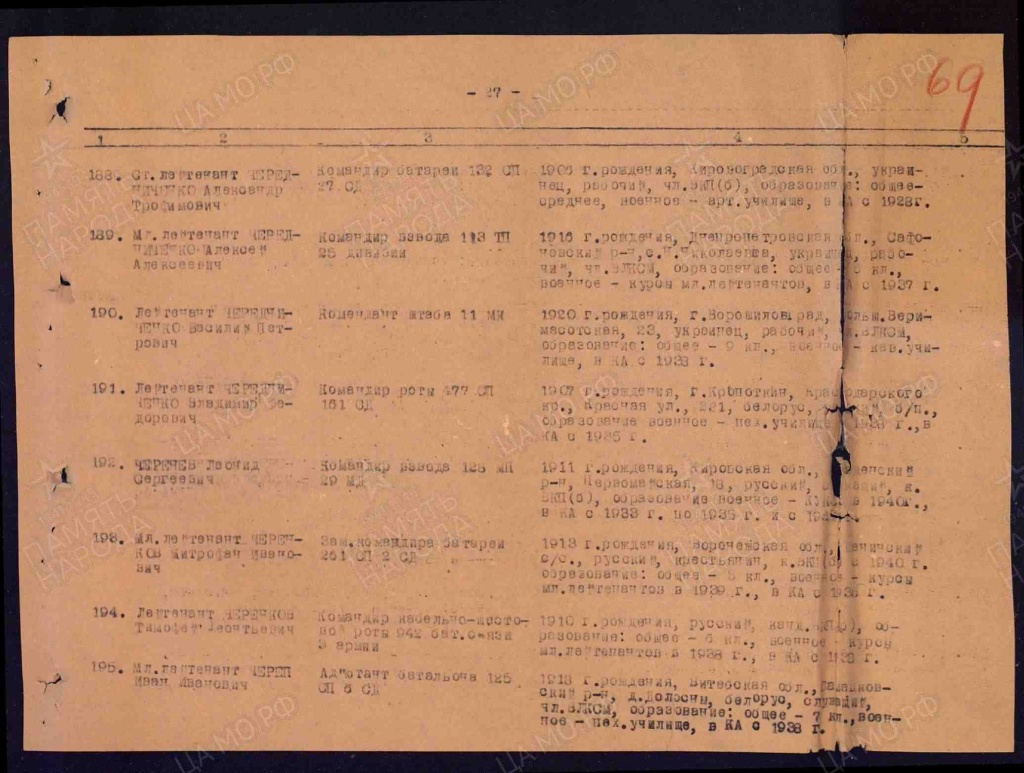 69
- 27 -
1 2 3 4 5
188. Ст.лейтенант ЧЕРЕД- Командир батареи 132 СП 1906 г.рождения, Кировоградская обл., украи-
НИЧЕНКО Александр 27 СД нец, рабочий, чл.ВКП(б), образование: общее-
Трофимович среднее, военное - арт.училище, в КА с 1928г.
189. Мл.лейтенант ЧЕРЕД- Командир взвода 113 ТП 1916 г.рождения, Днепропетровская обл., Сафо-
НИЧЕНКО Алексей 25 дивизии новский р-н, с.Н.Николаевка, украинец, рабо-
Алексеевич чий, чл.ВЛКСМ, образование: общее - кл.,
военное - курсы мл.лейтенантов, в КА с 1937 г.
190. Лейтенант ЧЕРЕДНИ- Комендант штаба 11 МК 1920 г.рождения, г.Ворошиловград,
ЧЕНКО Василий Пет- 23, украинец, рабочий, чл.ВЛКСМ,
рович образование: общее - 9 кл., военное - кав.учи-
лище, в КА с 1938 г.
191. Лейтенант ЧЕРЕДНИ- Командир роты 477 СП 1907 г.рождения, г.Кропоткин, Краснодарского
ЧЕНКО Владимир Фе- 161 СД кр., Красная ул., 221, белорус, б/п.,
дорович образование военное - пех.училище г., в
КА с
192. ЧЕРЕЧЕВ Леонид Командир взвода 128 МП 1911 г.рождения, Кировская обл.,
Сергеевич 29 МД р-н, Первомайская, 18, русский, к.
ВКП(б), образование военное - 1940г.,
в КА с 1933 г. по 1935 г. и с
193. Мл.лейтенант ЧЕРЕЧ- Зам.командира батареи 1913 г.рождения, Воронежская обл.,
КОВ Митрофан Ивано- 261 СП 2 СД с/с., русский, крестьянин, к.ВКП(б) с 1940 г.
вич образование: общее - кл., военное - курсы
мл.лейтенантов в 1939 г., в КА с г.
194. Лейтенант ЧЕРЕЧКОВ Командир кабельно-шесто- 1910 г.рождения, русский, канд.ВКП(б), об-
Тимофей Леонтьевич вой роты 942 бат.связи разование: общее - 6 кл., военное - курсы
3 армии мл.лейтенантов в 1938 г., в КА с г.
195. Мл.лейтенант ЧЕРЕП Адъютант батальона 125 1918 г.рождения, Витебская обл.,
Иван Иванович СП 6 СД ский р-н, д.Долосны, белорус, служащий,
чл.ВЛКСМ, образование: общее - 7 кл., воен-
ное - пех.училище, в КА с 1938 г.